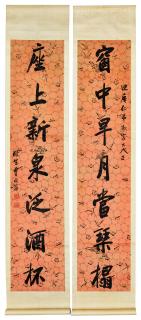 窗中早月當琹榻
座上新泉泛酒杯